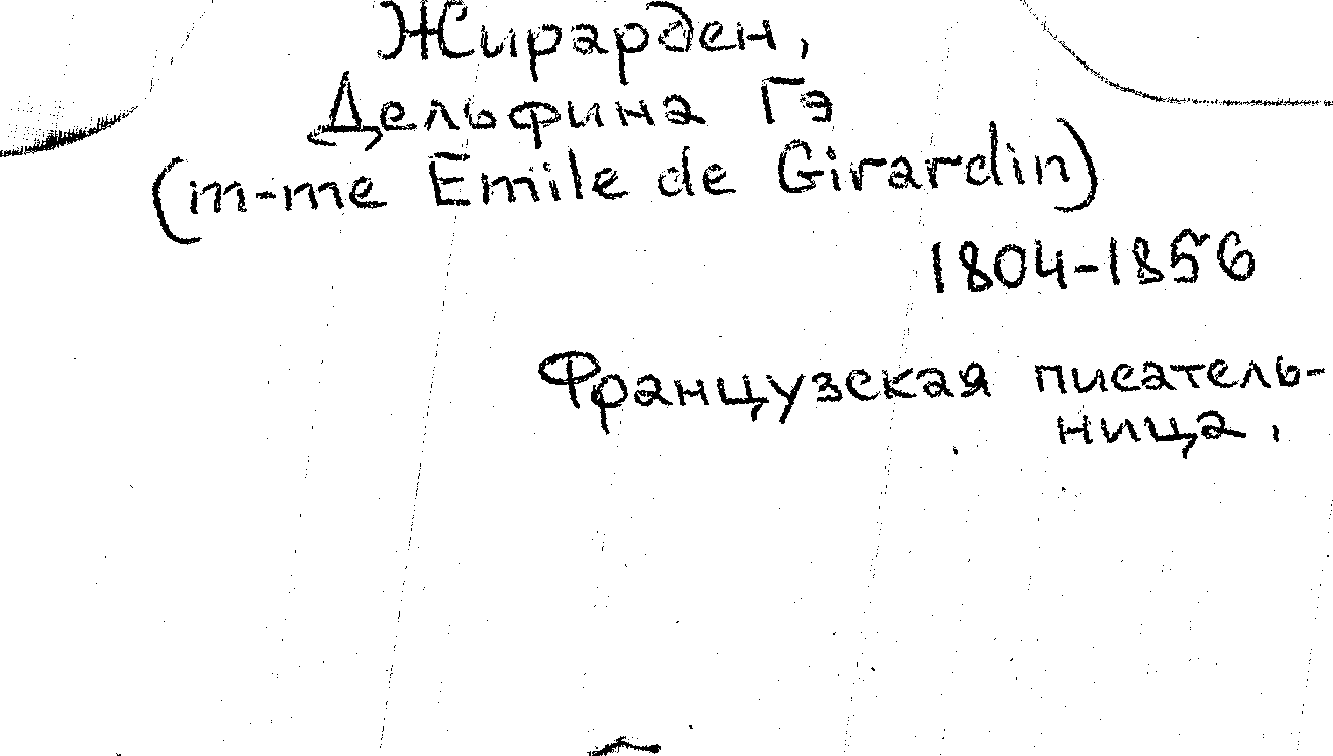 Жирарден,
Дельфина Гэ
(m-me Emile de Girardin)
1804-1856
Французская писатель-
ница.